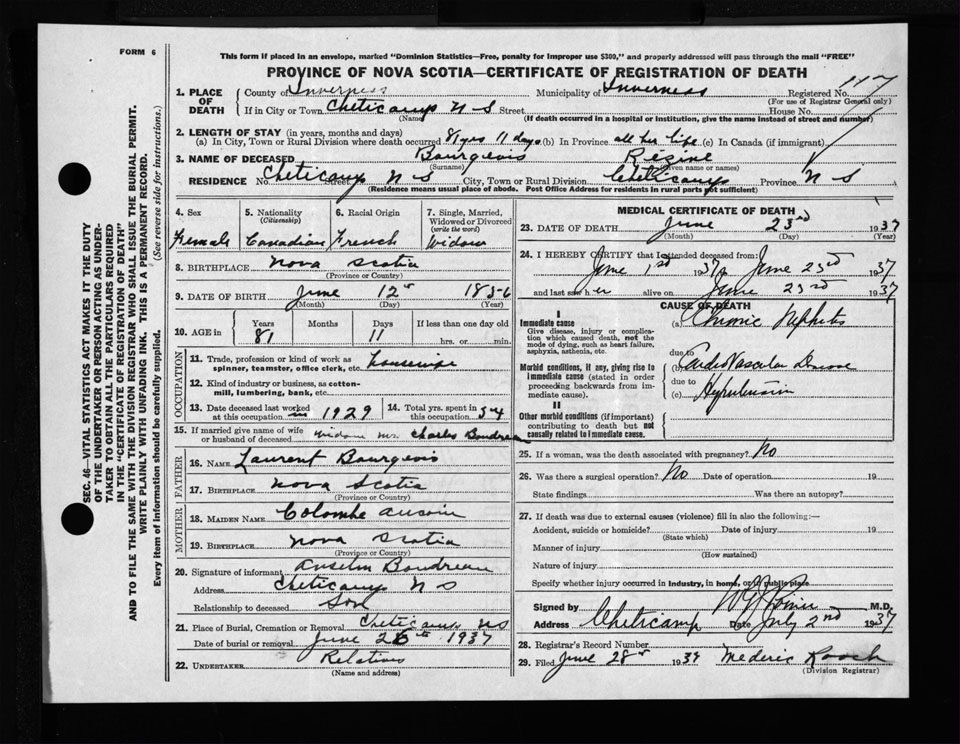 FORM 6
This form if placed in an envelope, marked "Dominion Statistics—Free, penalty for improper use $300," and properly addressed will pass through the mail "FREE"
PROVINCE OF NOVA SCOTIA—CERTIFICATE OF REGISTRATION OF DEATH
1. PLACE OF DEATH County of Inverness Municipality of Inverness Registered No. 117
(For use of Registrar General only)
If in City or Town Cheticamp N S Street House No.
(Name) (If death occurred in a hospital or institution, give the name instead of street and number)
2. LENGTH OF STAY (in years, months and days)
(a) In City, Town or Rural Division where death occurred 81 yrs 11 days (b) In Province all her life (c) In Canada (if immigrant)
3. NAME OF DECEASED Bourgeois Régine
(Surname) (Given name or names)
RESIDENCE No. Cheticamp Street N S City, Town or Rural Division Cheticamp Province N S
(Residence means usual place of abode. Post Office Address for residents in rural parts not sufficient)
4. Sex Female
5. Nationality (Citizenship) Canadian
6. Racial Origin French
7. Single, Married, Widowed or Divorced (write the word) Widow
8. BIRTHPLACE Nova Scotia
(Province or Country)
9. DATE OF BIRTH June 12th 1856
(Month) (Day) (Year)
10. AGE in Years Months Days If less than one day old
81 11 hrs. or min.
OCCUPATION
11. Trade, profession or kind of work as spinner, teamster, office clerk, etc. housewife
12. Kind of industry or business, as cotton-mill, lumbering, bank, etc.
13. Date deceased last worked at this occupation in 1929
14. Total yrs. spent in this occupation 54
15. If married give name of wife or husband of deceased widow Mr. Charles Boudreau
FATHER
16. NAME Laurent Bourgeois
17. BIRTHPLACE Nova Scotia
(Province or Country)
MOTHER
18. MAIDEN NAME Colombe Aucoin
19. BIRTHPLACE Nova Scotia
(Province or Country)
20. Signature of informant Anselm Boudreau
Address Cheticamp N S
Relationship to deceased Son
21. Place of Burial, Cremation or Removal Cheticamp NS
Date of burial or removal June 26th 1937
22. UNDERTAKER Relatives
(Name and address)
MEDICAL CERTIFICATE OF DEATH
23. DATE OF DEATH June 23rd 1937
(Month) (Day) (Year)
24. I HEREBY CERTIFY that I attended deceased from:
June 1st 1937 to June 23rd 1937
and last saw her alive on June 23rd 1937
CAUSE OF DEATH
I
Immediate cause
Give disease, injury or complication which caused death, not the mode of dying, such as heart failure, asphyxia, asthenia, etc.
(a) Chronic Nephritis
due to
Morbid conditions, if any, giving rise to immediate cause (stated in order proceeding backwards from immediate cause).
(b) Cardio Vascular Disease
due to
(c) Hypertension
II
Other morbid conditions (if important) contributing to death but not causally related to immediate cause.
25. If a woman, was the death associated with pregnancy? No
26. Was there a surgical operation? No Date of operation 19
State findings Was there an autopsy?
27. If death was due to external causes (violence) fill in also the following:—
Accident, suicide or homicide? Date of injury 19
(State which)
Manner of injury
(How sustained)
Nature of injury
Specify whether injury occurred in industry, in home, or public place
Signed by M.D.
Address Cheticamp Date July 2nd 1937
28. Registrar's Record Number
29. Filed June 28th 1937 Mederic Roach
(Division Registrar)
SEC. 46—VITAL STATISTICS ACT MAKES IT THE DUTY
OF THE UNDERTAKER OR PERSON ACTING AS UNDER-
TAKER TO OBTAIN ALL THE PARTICULARS REQUIRED
IN THE "CERTIFICATE OF REGISTRATION OF DEATH"
AND TO FILE THE SAME WITH THE DIVISION REGISTRAR WHO SHALL ISSUE THE BURIAL PERMIT.
WRITE PLAINLY WITH UNFADING INK. THIS IS A PERMANENT RECORD.
Every item of information should be carefully supplied. (See reverse side for instructions.)